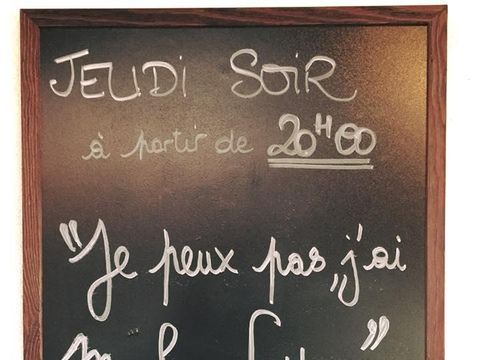 JEUDI SOIR
à partir de 20H00
"Je peux pas, j'ai